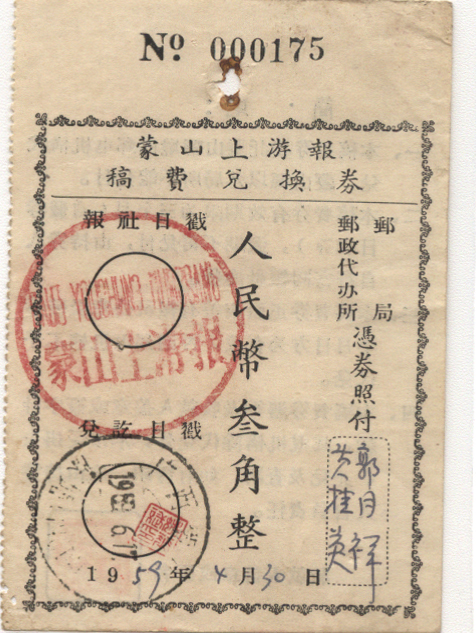 № 000175
蒙山上游報
稿費兌換券
報社日戳
蒙山上游报
兌訖日戳
郵局
郵政代办所
憑券照付
人民幣叁角整
郭日祥
黄桂英
1959年4月30日